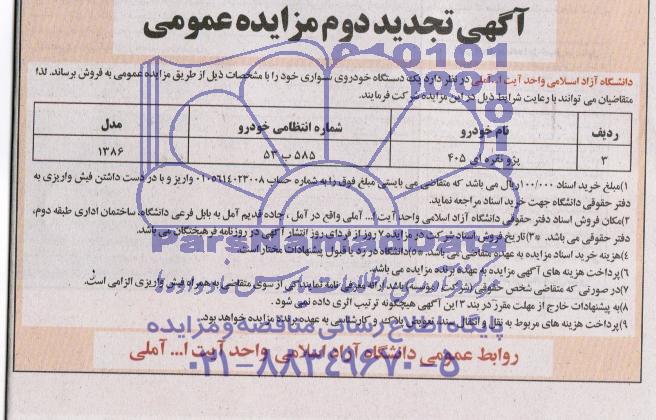 آگهی تجدید دوم مزایده عمومی
دانشگاه آزاد اسلامی واحد آیت ا... آملی در نظر دارد یک دستگاه خودروی سواری خود را با مشخصات ذیل از طریق مزایده عمومی به فروش برساند. لذا
متقاضیان می توانند با رعایت شرایط ذیل در این مزایده شرکت فرمایند.
ردیف نام خودرو شماره انتظامی خودرو مدل
۳ پژو نقره ای ۴۰۵ ۵۸۵ ب ۵۳ ۱۳۸۶
۱)مبلغ خرید اسناد ۱۰۰/۰۰۰ریال می باشد که متقاضی می بایستی مبلغ فوق را به شماره حساب ۰۱۰۵۶۱۴۰۲۳۰۰۸ واریز و با در دست داشتن فیش واریزی به
دفتر حقوقی دانشگاه جهت خرید اسناد مراجعه نماید.
۲)مکان فروش اسناد دفتر حقوقی دانشگاه آزاد اسلامی واحد آیت ا... آملی واقع در آمل ، جاده قدیم آمل به بابل فرعی دانشگاه، ساختمان اداری طبقه دوم،
دفتر حقوقی می باشد. *۳)تاریخ فروش اسناد شرکت در مزایده ۷ روز از فردای روز انتشار آگهی در روزنامه فرهیختگان می باشد.
۴)هزینه خرید اسناد مزایده به عهده متقاضی می باشد. *۵)دانشگاه در رد یا قبول پیشنهادات مختار است.
۶)پرداخت هزینه های آگهی مزایده به عهده برنده مزایده می باشد.
۷)در صورتی که متقاضی شخص حقوقی (شرکت / موسسه) باشد ارائه معرفی نامه نمایندگی از سوی متقاضی به همراه فیش واریزی الزامی است.
۸)به پیشنهادات خارج از مهلت مقرر در بند ۳ این آگهی هیچگونه ترتیب اثری داده نمی شود.
۹)پرداخت هزینه های مربوط به نقل و انتقال سند، تعویض پلاک و کارشناسی به عهده برنده مزایده خواهد بود.
روابط عمومی دانشگاه آزاد اسلامی واحد آیت ا... آملی
ParsNamadData
پایگاه اطلاع رسانی مناقصه و مزایده
۰۲۱-۸۸۳۴۹۶۷۰-۵